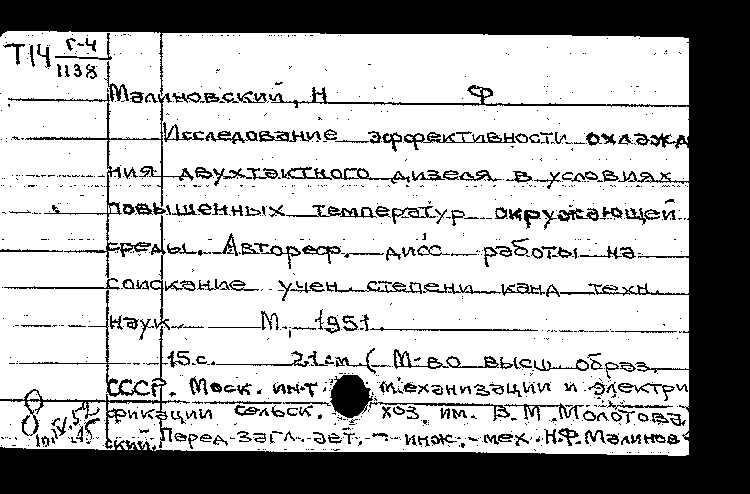 Т14 Г-4
1138
Малиновский, Н Ф
Исследование эффективности охлажд
ния двухтактного дизеля в условиях
повышенных температур окружающей
среды. Автореф. дисс работы на
соискание учен. степени канд техн.
наук М, 1951.
15 с. 21 см ( М-во высш образ.
СССР. Моск. ин-т механизации и электри
фикации сельск. хоз им. В. М. Молотова
Перед загл. авт. - инж.-мех. Н.Ф. Малинов
ский.
8